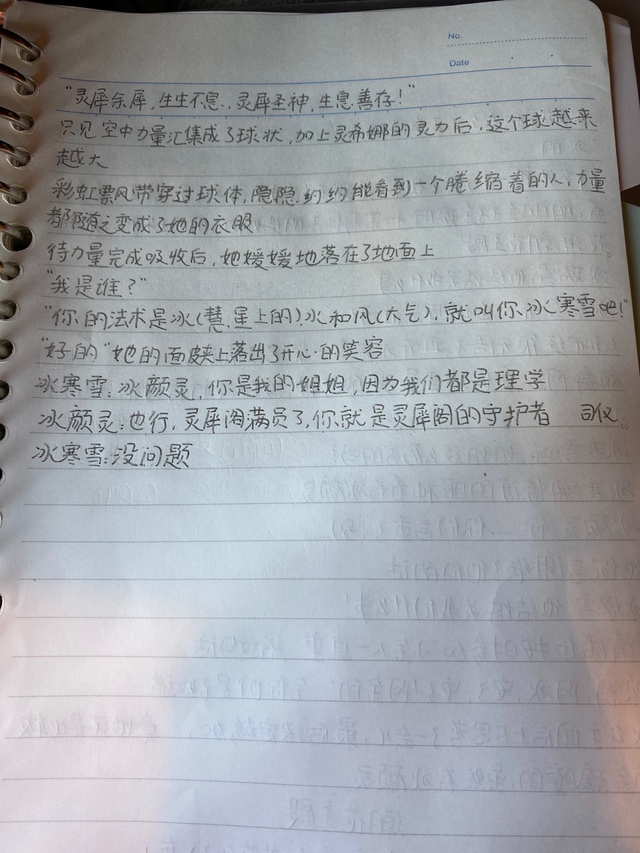 No.
Date
"灵犀余犀,生生不息..灵犀圣神,生息善存!"
只见空中力量汇集成了球状,加上灵希娜的灵力后,这个球越来
越大
彩虹飘风带穿过球体,隐隐约约能看到一个蜷缩着的人,力量
都随之变成了她的衣服
待力量完成吸收后,她媛媛地落在了地面上
"我是谁?"
"你的法术是冰(慧星上的)水和风(大气),就叫你冰寒雪吧!"
"好的"她的面颊上落出了开心的笑容
冰寒雪:冰颜灵,你是我的姐姐,因为我们都是理学
冰颜灵:也行,灵犀阁满员了,你就是灵犀阁的守护者 司仪
冰寒雪:没问题